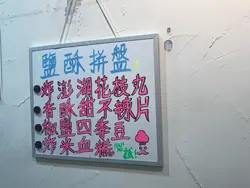 鹽酥拼盤
炸澎湖花枝丸
香酥甜不辣片
椒鹽四季豆
炸米血糕